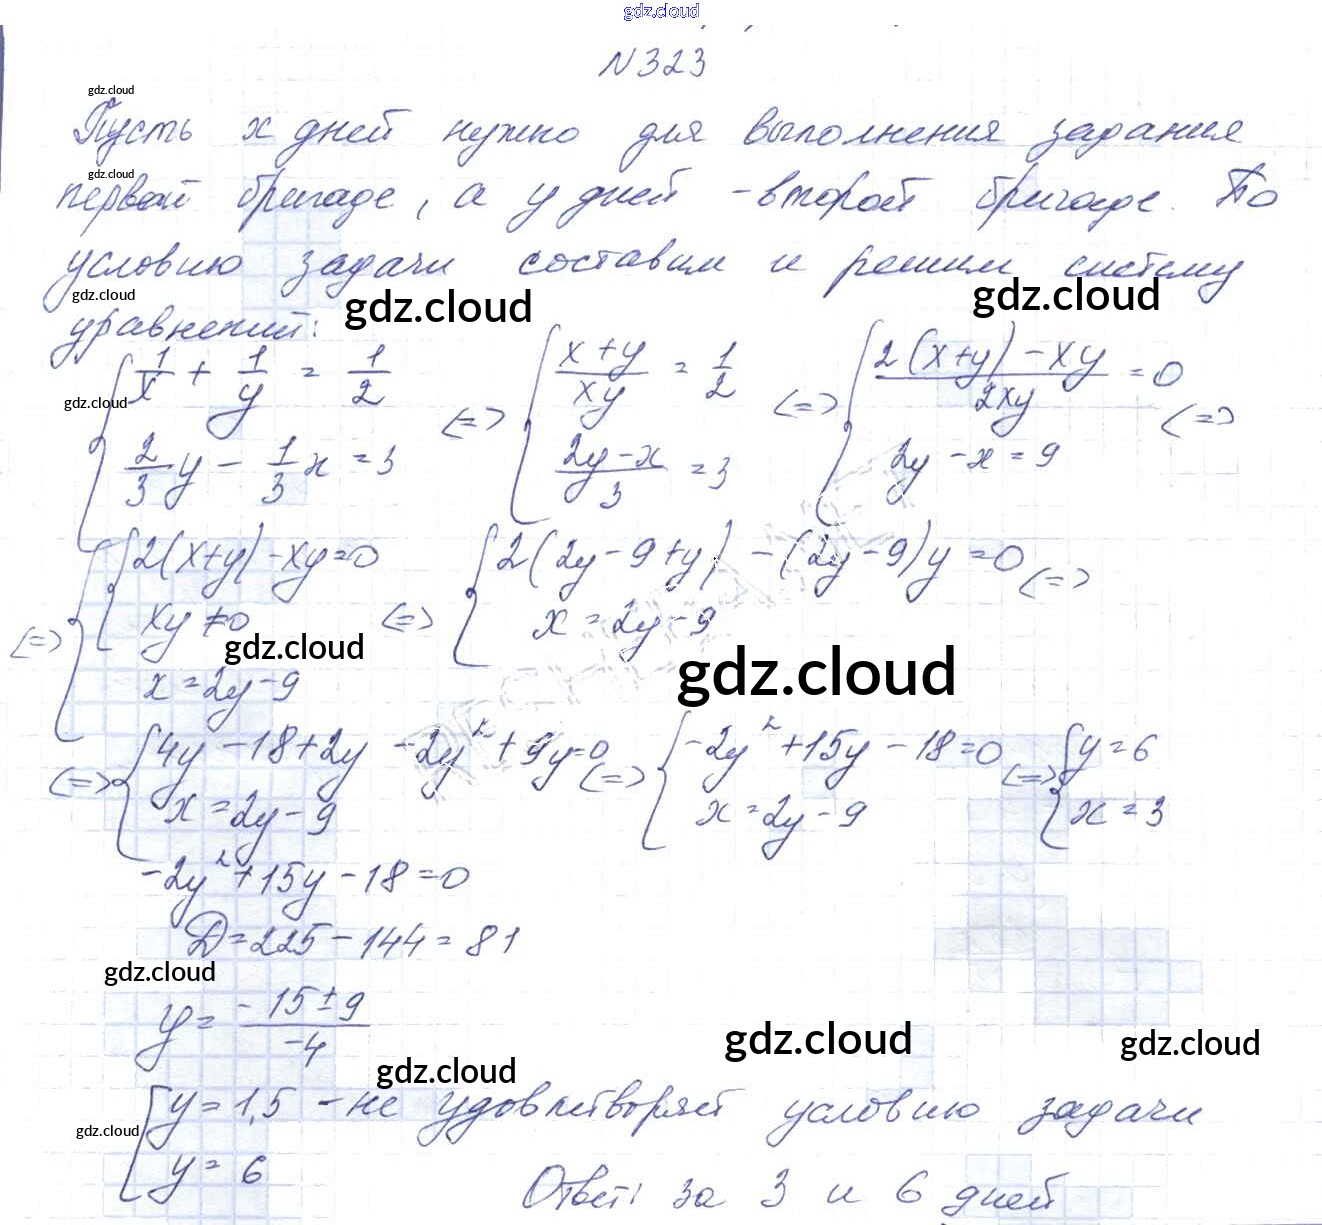 gdz.cloud
N323
gdz.cloud
Пусть x дней нужно для выполнения задания
gdz.cloud
первой бригаде, а y дней - второй бригаде. По
условию задачи составим и решим систему
gdz.cloud gdz.cloud gdz.cloud
уравнений:
{ 1/x + 1/y = 1/2 <=> { (x+y)/(xy) = 1/2 <=> { (2(x+y)-xy)/(2xy) = 0 <=>
gdz.cloud
2/3 y - 1/3 x = 3 (2y-x)/3 = 3 2y - x = 9
<=> { { 2(x+y)-xy=0 <=> { 2(2y-9+y)-(2y-9)y=0 <=>
xy≠0 x = 2y-9
gdz.cloud gdz.cloud
x = 2y-9
<=> { 4y-18+2y-2y²+9y=0 <=> { -2y²+15y-18=0 <=> { y=6
x=2y-9 x=2y-9 x=3
-2y²+15y-18=0
D=225-144=81
gdz.cloud
y = (-15±9)/(-4)
gdz.cloud gdz.cloud
gdz.cloud
[ y=1,5 - не удовлетворяет условию задачи
gdz.cloud
y=6
Ответ: за 3 и 6 дней